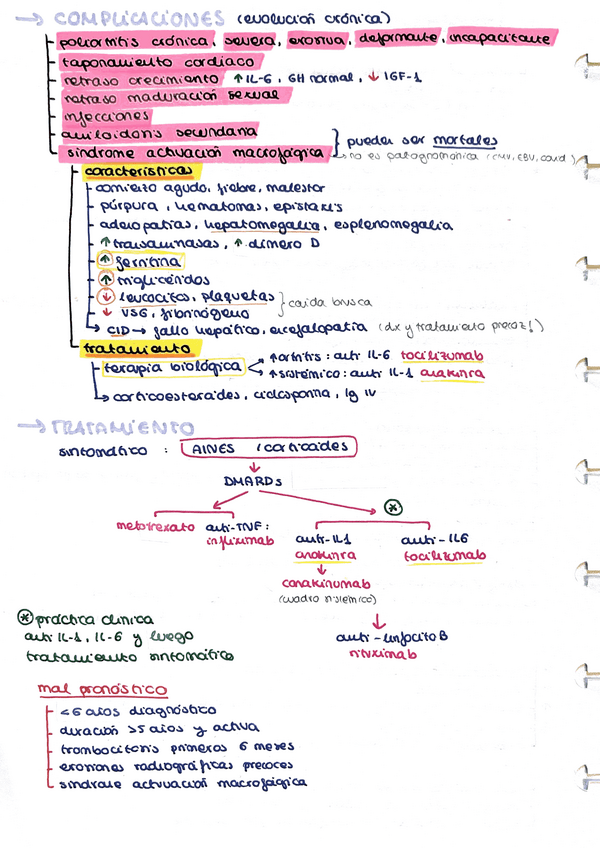 → COMPLICACIONES (evolución crónica)
poliartritis crónica, severa, erosiva, deformante, incapacitante
taponamiento cardiaco
retraso crecimiento ↑IL-6, GH normal, ↓ IGF-1
retraso maduración sexual
infecciones
amiloidosis secundaria
síndrome activación macrofágica } pueden ser mortales
→ no es patognomónica (CMV, EBV, covid)
características
comienzo agudo, fiebre, malestar
púrpura, hematomas, epistaxis
adenopatías, hepatomegalia, esplenomegalia
↑ transaminasas, ↑ dímero D
↑ ferritina
↑ triglicéridos
↓ leucocitos, plaquetas } caída brusca
↓ VSG, fibrinógeno
CID → fallo hepático, encefalopatía (dx y tratamiento precoz!)
tratamiento
terapia biológica ↑ artritis: anti IL-6 tocilizumab
↑ sistémico: anti IL-1 anakinra
corticoesteroides, ciclosporina, Ig IV
→ TRATAMIENTO
sintomático : AINES / corticoides
DMARDs
metotrexato anti-TNF: infliximab
anti-IL1 anakinra
anti-IL6 tocilizumab
canakinumab
(cuadro sistémico)
anti-linfocito B
rituximab
* práctica clínica
anti IL-1, IL-6 y luego
tratamiento sintomático
mal pronóstico
<6 años diagnóstico
duración >5 años y activa
trombocitosis primeros 6 meses
erosiones radiográficas precoces
síndrome activación macrofágica